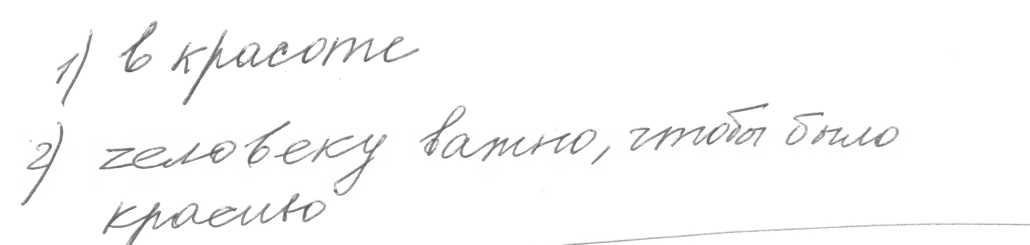 1) в красоте
2) человеку важно, чтобы было
красиво